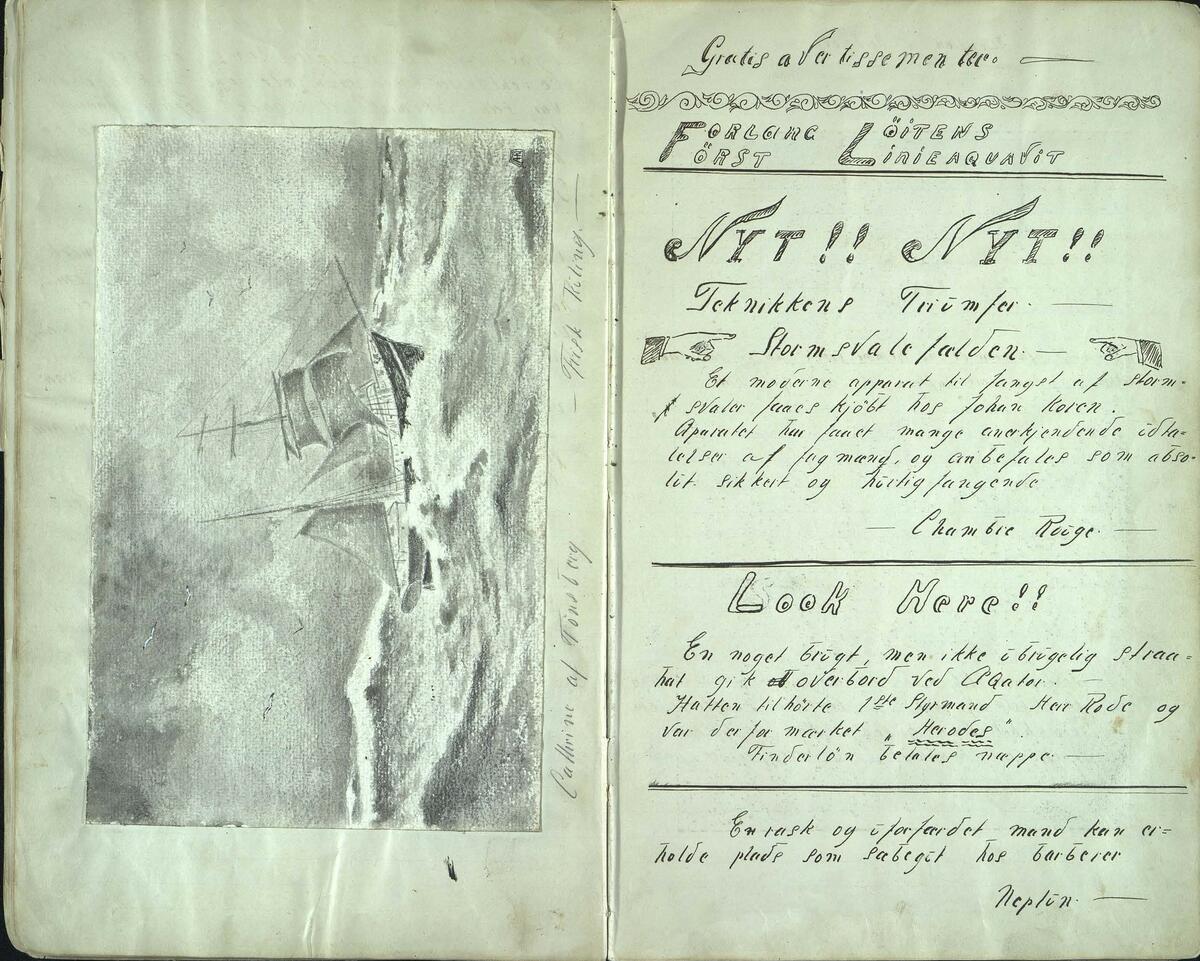 Cathrine af Tönsberg — Frisk Kuling. —
Gratis avertissementer. —
FORLANG LÖITENS
FÖRST LINIEAQUAVIT
NYT!! NYT!!
Teknikkens Triumfer. —
Stormsvalefælden. —
Et moderne apparat til fangst af storm-
svaler faaes kjöbt hos Johan Koren.
Aparatet har faaet mange anerkjendende udta-
lelser af fagmænd, og anbefales som abso-
lut sikkert og hurtigfangende
— Chambre Rouge. —
Look Here!!
En noget brugt, men ikke ubrugelig straa=
hat gik overbord ved Æqator. —
Hatten tilhörte 1ste Styrmand Herr Rode og
var derfor mærket „Herodes".
Finderlön betales næppe. —
En rask og uforfærdet mand kan er=
holde plads som sæbegut hos barberer
Neptun. —